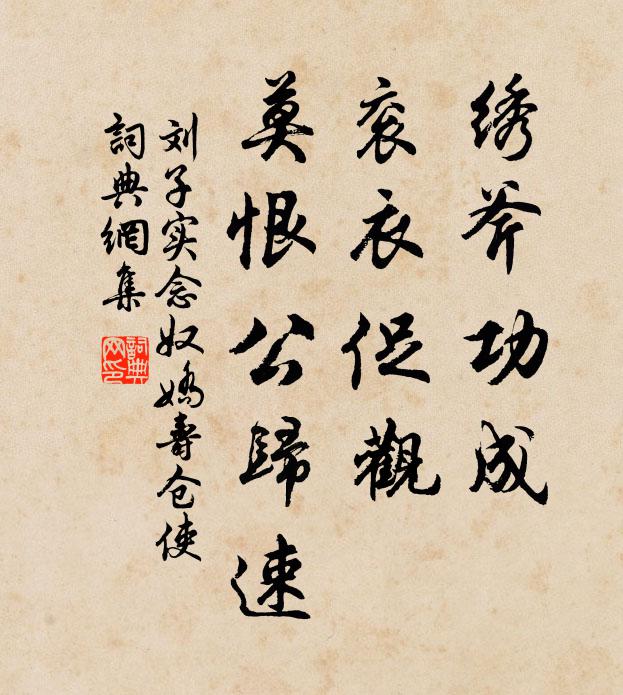 绣斧功成
衮衣促觀
莫恨公歸速
刘子实念奴嬌壽仓使
詞典網集
詞典网印